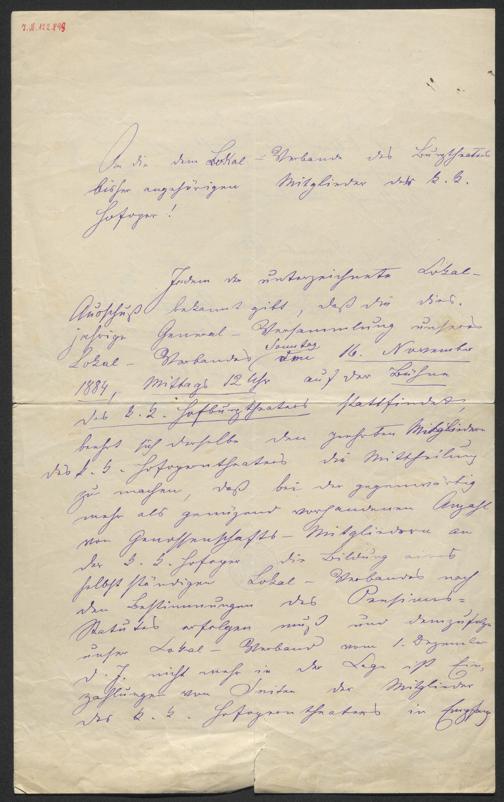 An die dem Lokal-Verbande des Burgtheaters
bisher angehörigen Mitglieder der k. k.
Hofoper!
Indem der unterzeichnete Lokal-
Ausschuß bekannt gibt, daß die dies-
jährige General-Versammlung unseres
Lokal-Verbandes Sonntag den 16. November
1884, Mittags 12 Uhr auf der Bühne
des k. k. Hofburgtheaters stattfindet,
beehrt sich derselbe den geehrten Mitgliedern
des k. k. Hofoperntheaters die Mittheilung
zu machen, daß bei der gegenwärtig
mehr als genügend vorhandenen Anzahl
von Genossenschafts-Mitgliedern an
der k. k. Hofoper die Bildung eines
selbstständigen Lokal-Verbandes nach
den Bestimmungen des Pensions-
Statutes erfolgen muß und demzufolge
unser Lokal-Verband vom 1. Dezember
d. J. nicht mehr in der Lage ist Ein-
zahlungen von Seiten der Mitglieder
des k. k. Hofoperntheaters in Empfang